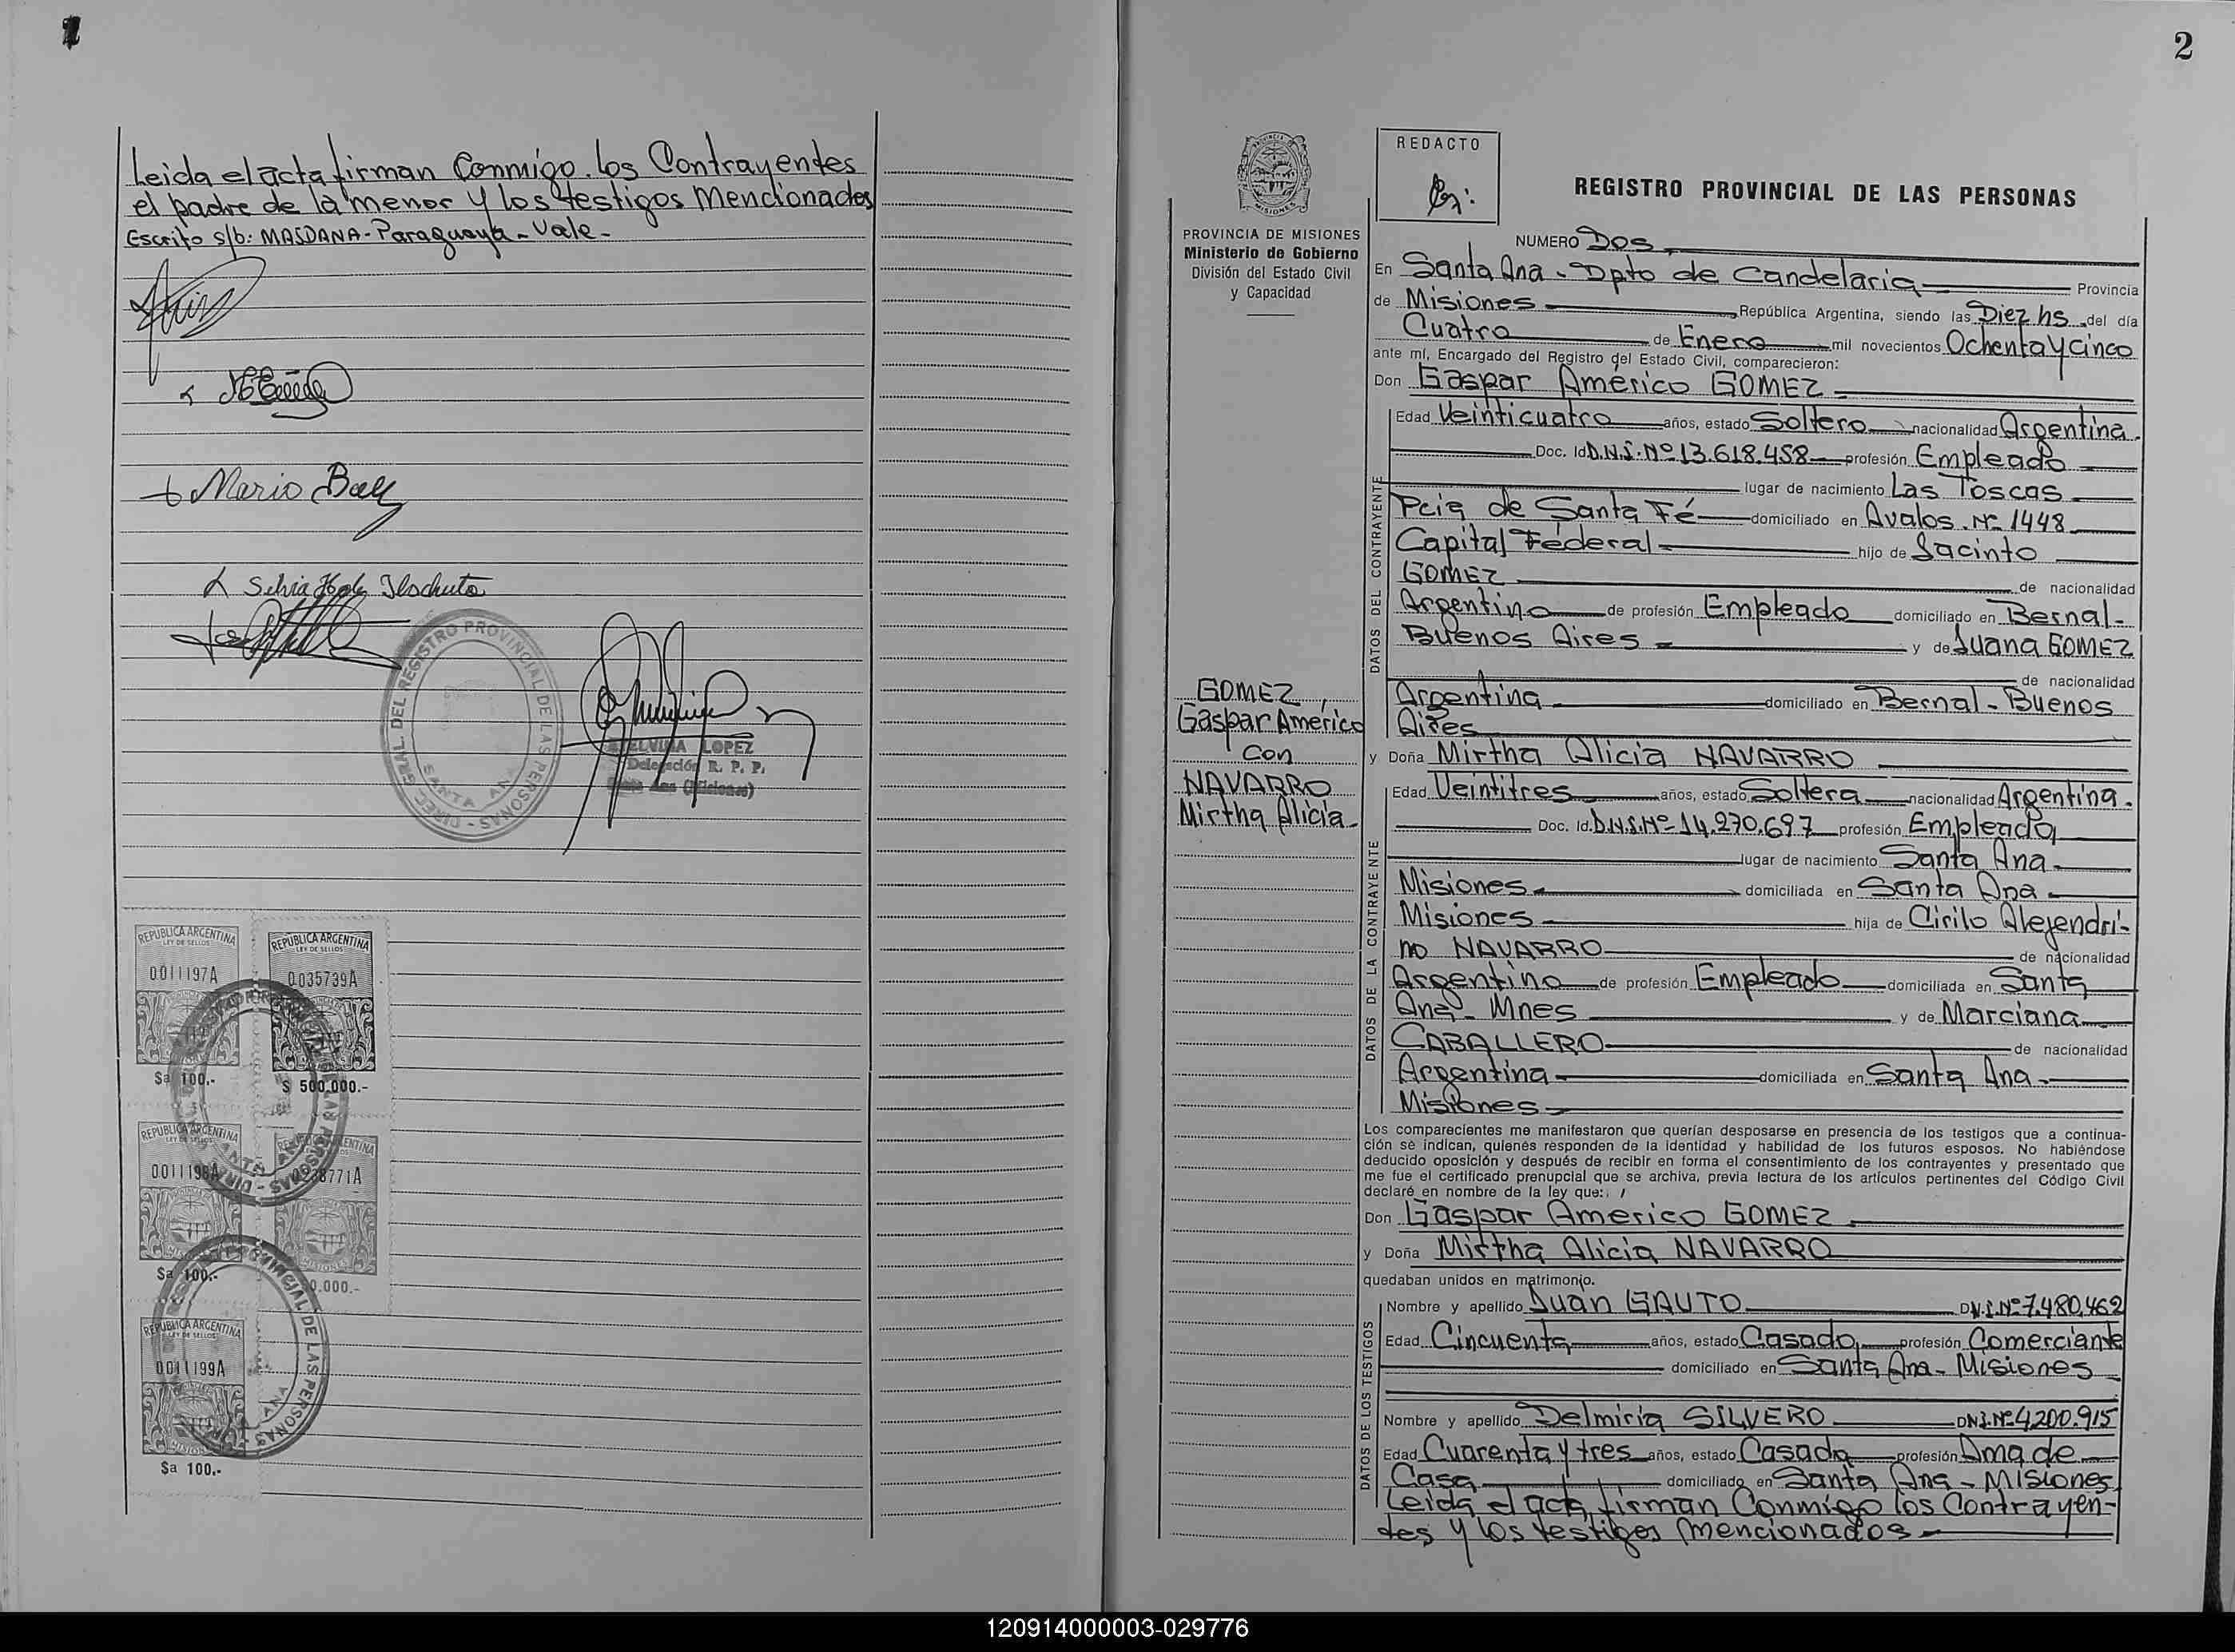 2
Leida el acta firman Conmigo. los Contrayentes
el padre de la menor y los testigos Mencionados
Escrito s/b: MASDANA - Paraguaya - Vale -
Mario
Silvia
DIREC. GRAL. DEL REGISTRO PROVINCIAL DE LAS PERSONAS - SANTA ANA
ELVIRA LOPEZ
Delegación R. P. P.
Santa Ana (Misiones)
REPUBLICA ARGENTINA
LEY DE SELLOS
0011197A
$a 100.-
REPUBLICA ARGENTINA
LEY DE SELLOS
0035739A
$ 500,000.-
REPUBLICA ARGENTINA
LEY DE SELLOS
0011198A
$a 100.-
0238771A
0.000.-
REPUBLICA ARGENTINA
LEY DE SELLOS
0011199A
$a 100.-
PROVINCIA DE MISIONES
Ministerio de Gobierno
División del Estado Civil
y Capacidad
GOMEZ,
Gaspar Americo
con
NAVARRO
Mirtha Alicia
REDACTO
REGISTRO PROVINCIAL DE LAS PERSONAS
NUMERO Dos
En Santa Ana - Dpto de Candelaria Provincia
de Misiones República Argentina, siendo las Diez hs del día
Cuatro de Enero mil novecientos Ochenta y cinco
ante mí, Encargado del Registro del Estado Civil, comparecieron:
Don Gaspar Américo GOMEZ
DATOS DEL CONTRAYENTE
Edad Veinticuatro años, estado Soltero nacionalidad Argentina.
Doc. Id D.N.I. Nº 13.618.458 profesión Empleado
lugar de nacimiento Las Toscas
Pcia de Santa Fé domiciliado en Avalos. Nº 1448
Capital Féderal hijo de Jacinto
GOMEZ de nacionalidad
Argentino de profesión Empleado domiciliado en Bernal -
Buenos Aires y de Juana GOMEZ
de nacionalidad
Argentina domiciliado en Bernal - Buenos
Aires
y Doña Mirtha Alicia NAVARRO
DATOS DE LA CONTRAYENTE
Edad Veintitres años, estado Soltera nacionalidad Argentina.
Doc. Id. D.N.I. Nº 14.270.697 profesión Empleada
lugar de nacimiento Santa Ana
Misiones domiciliada en Santa Ana
Misiones hija de Cirilo Alejendri-
no NAVARRO de nacionalidad
Argentino de profesión Empleado domiciliada en Santa
Ana - Mnes y de Marciana
CABALLERO de nacionalidad
Argentina domiciliada en Santa Ana -
Misiones
Los comparecientes me manifestaron que querían desposarse en presencia de los testigos que a continua-
ción se indican, quienés responden de la identidad y habilidad de los futuros esposos. No habiéndose
deducido oposición y después de recibir en forma el consentimiento de los contrayentes y presentado que
me fue el certificado prenupcial que se archiva, previa lectura de los artículos pertinentes del Código Civil
declaré en nombre de la ley que:
Don Gaspar Americo GOMEZ
y Doña Mirtha Alicia NAVARRO
quedaban unidos en matrimonio.
DATOS DE LOS TESTIGOS
Nombre y apellido Juan GAUTO D.N.I. Nº 7.480.462
Edad Cincuenta años, estado Casado profesión Comerciante
domiciliado en Santa Ana - Misiones
Nombre y apellido Delmiria SILVERO DNI. Nº 4.200.915
Edad Cuarenta y tres años, estado Casada profesión Ama de
Casa domiciliado en Santa Ana - Misiones
Leida el acta, firman Conmigo los Contrayen-
tes y los testigos mencionados -
120914000003-029776